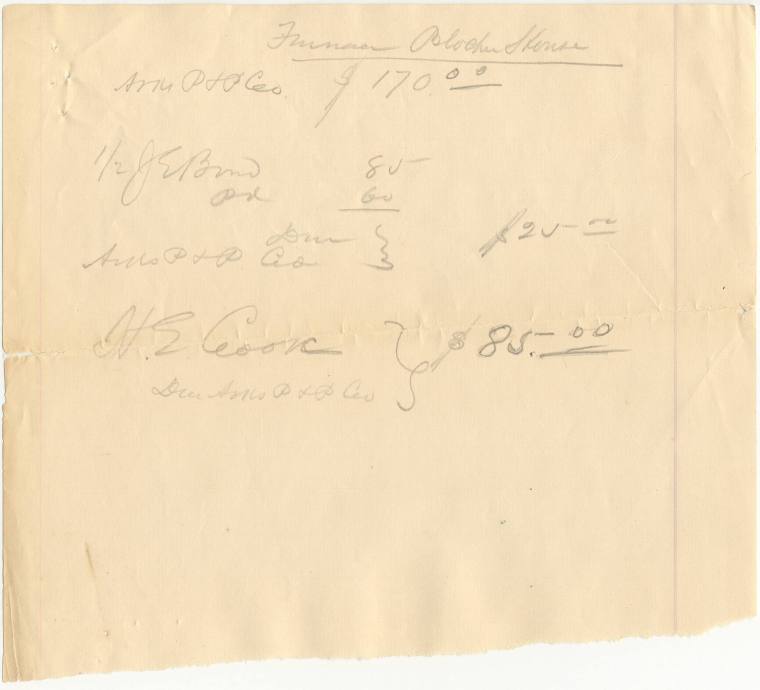 Furnace Blocher House
Arns P & P Co. $170.00
1/2 J E Bond 85
Pd 60
Due
Arns P & P Co } $25.00
H. E. Cook } $85.00
Due Arns P & P Co